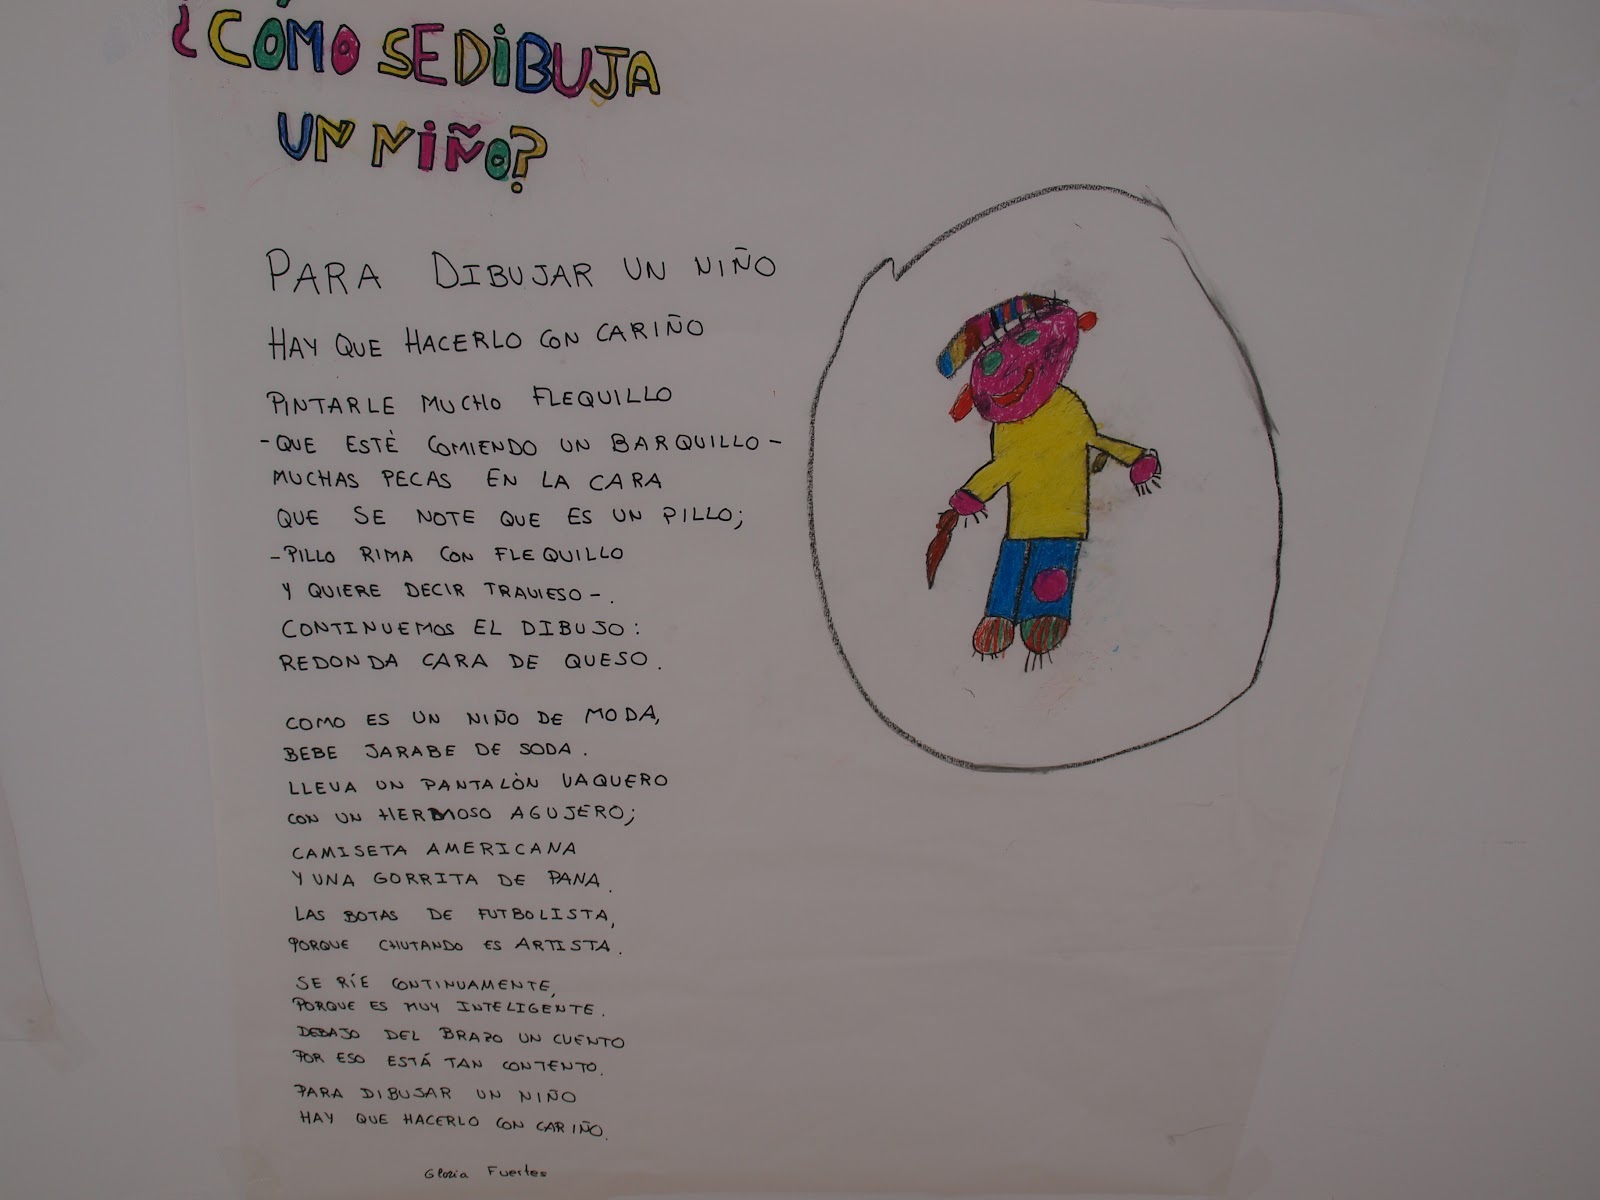 ¿CÓMO SE DIBUJA
UN NIÑO?
PARA DIBUJAR UN NIÑO
HAY QUE HACERLO CON CARIÑO
PINTARLE MUCHO FLEQUILLO
-QUE ESTÉ COMIENDO UN BARQUILLO-
MUCHAS PECAS EN LA CARA
QUE SE NOTE QUE ES UN PILLO;
-PILLO RIMA CON FLEQUILLO
Y QUIERE DECIR TRAVIESO-.
CONTINUEMOS EL DIBUJO:
REDONDA CARA DE QUESO.
COMO ES UN NIÑO DE MODA,
BEBE JARABE DE SODA.
LLEVA UN PANTALÓN VAQUERO
CON UN HERMOSO AGUJERO;
CAMISETA AMERICANA
Y UNA GORRITA DE PANA.
LAS BOTAS DE FUTBOLISTA,
PORQUE CHUTANDO ES ARTISTA.
SE RÍE CONTINUAMENTE,
PORQUE ES MUY INTELIGENTE.
DEBAJO DEL BRAZO UN CUENTO
POR ESO ESTÁ TAN CONTENTO.
PARA DIBUJAR UN NIÑO
HAY QUE HACERLO CON CARIÑO.
Gloria Fuertes